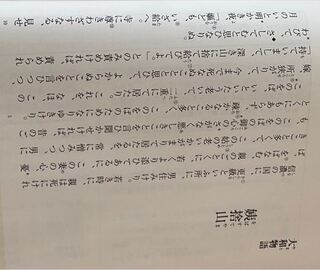 大和物語
姨捨山
信濃の国に更級といふ所に、男住みけり。若き時に、親は死にけれ
ば、をばなむ親のごとくに、若くより添ひてあるに、この妻の心憂
きこと多くて、この姑の老いかがまりて居たるを、常に憎みつつ、男に
もこのをばの御心のさがなく悪しきことを言ひ聞かせければ、昔のごと
くにもあらず、おろかなること多く、このをばのためになりゆきけり。
このをば、いといたう老いて、二重にて居たり。これをなほ、この
嫁、所狭がりて、今まで死なぬことと思ひて、よからぬことを言ひつつ、
「持ていまして、深き山に捨て給びてよ。」とのみ責めければ、責められ
わびて、さしてむと思ひなりぬ。
月のいと明かき夜、「嫗ども、いざ給へ。寺に尊きわざすなる、見せ